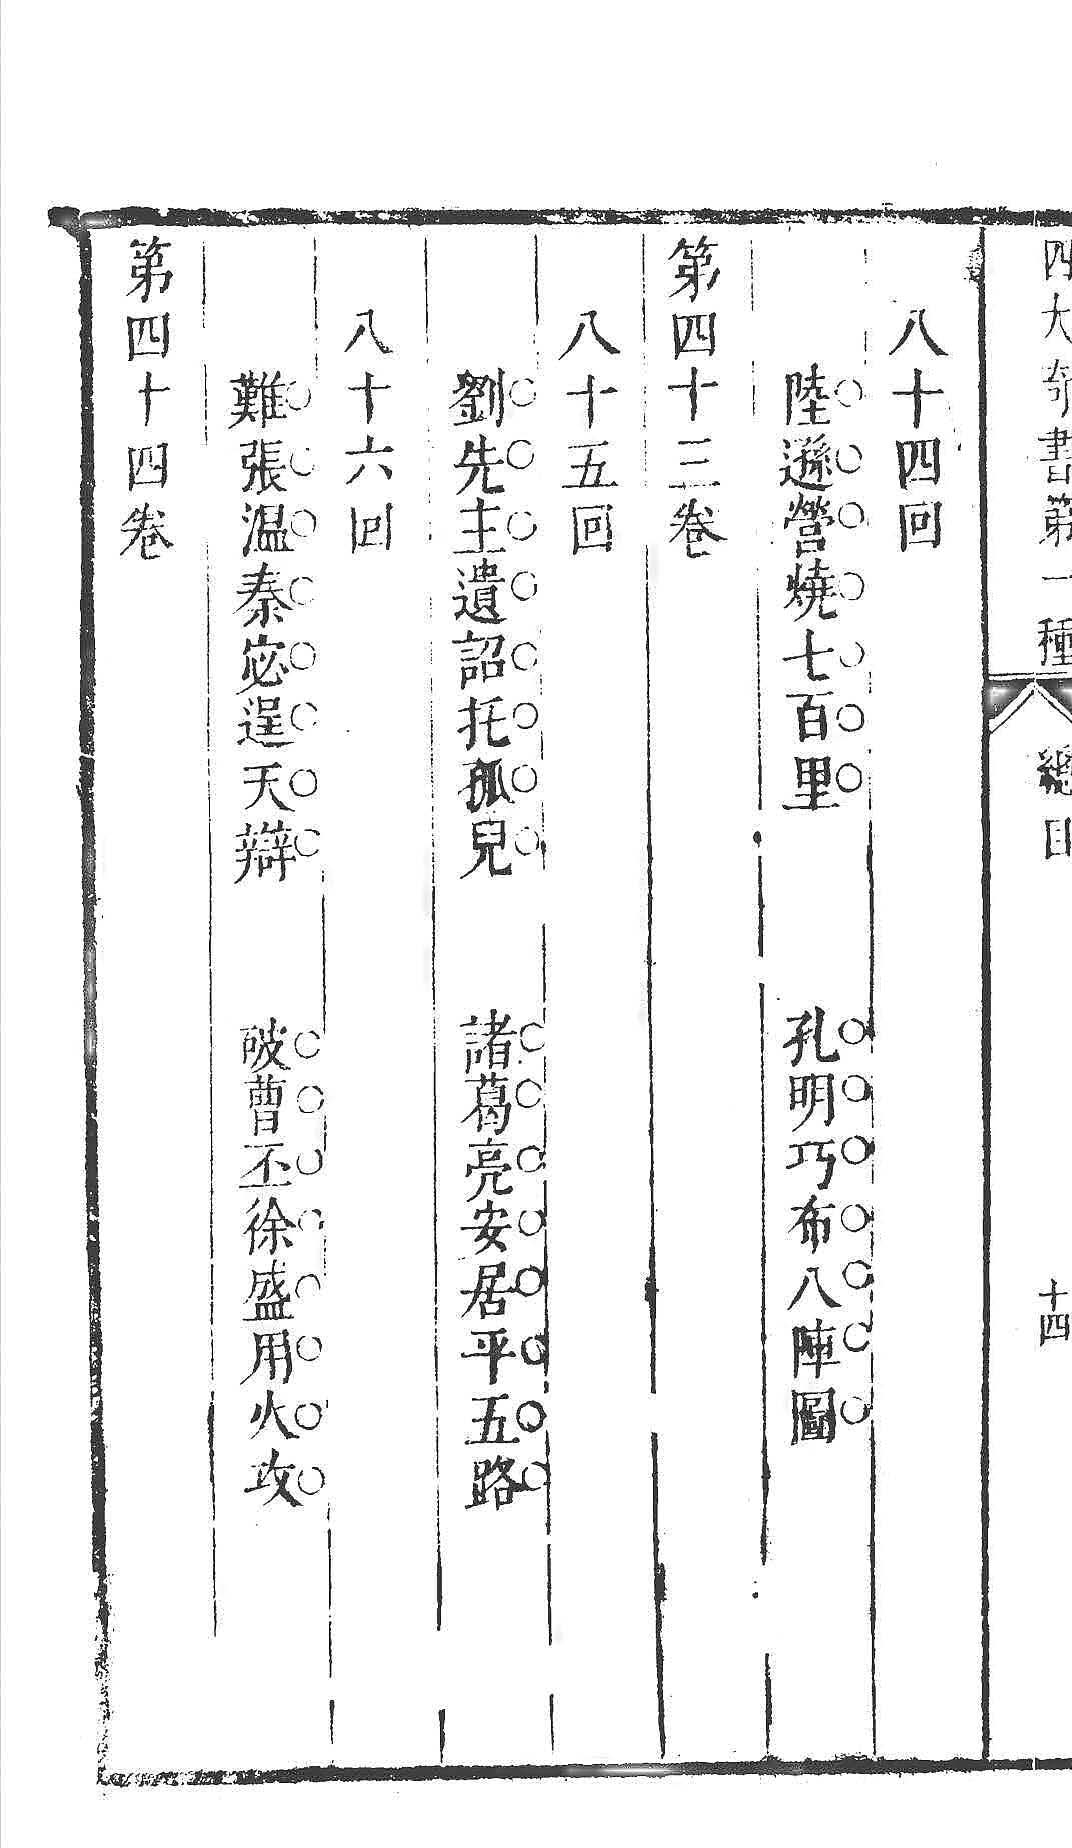 四大奇書第一種　總目　十四
八十四回
陸遜營燒七百里　孔明巧布八陣圖
第四十三卷
八十五回
劉先主遺詔托孤兒　諸葛亮安居平五路
八十六回
難張温秦宓逞天辯　破曹丕徐盛用火攻
第四十四卷